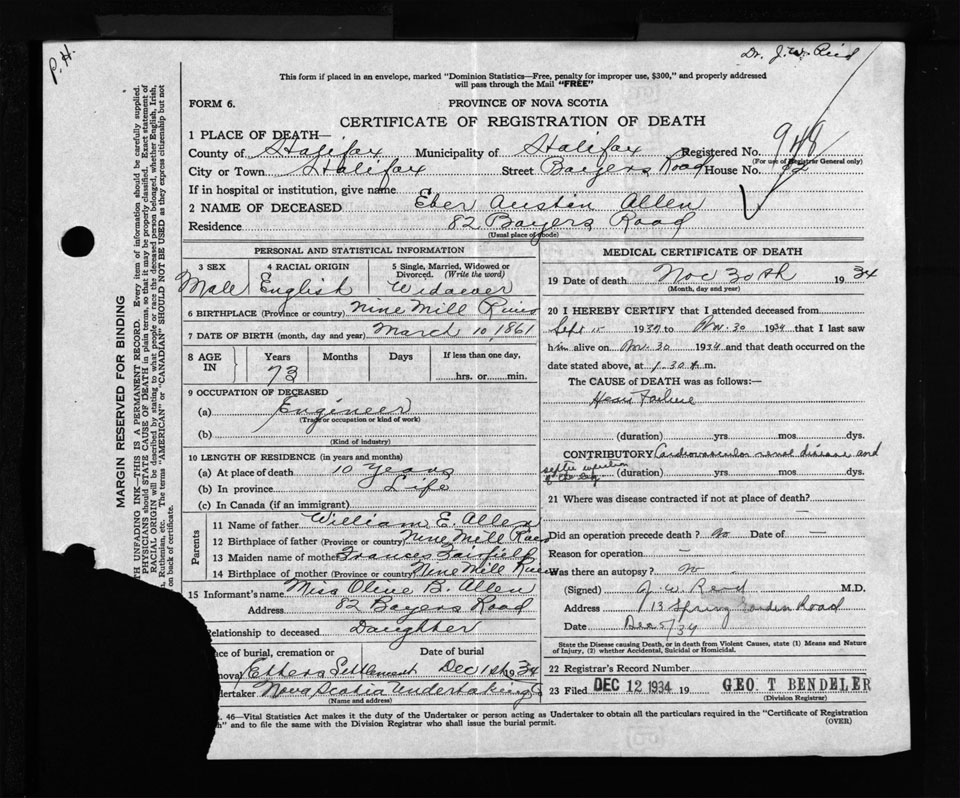 P. H.
Dr. J. W. Reid
This form if placed in an envelope, marked "Dominion Statistics—Free, penalty for improper use, $300," and properly addressed
will pass through the Mail "FREE"
FORM 6.
PROVINCE OF NOVA SCOTIA
CERTIFICATE OF REGISTRATION OF DEATH
1 PLACE OF DEATH—
County of Halifax Municipality of Halifax Registered No. 948
(For use of Registrar General only)
City or Town Halifax Street Bayers Road House No. 82
If in hospital or institution, give name
2 NAME OF DECEASED Eber Austen Allen
Residence 82 Bayers Road
(Usual place of abode)
PERSONAL AND STATISTICAL INFORMATION
3 SEX 4 RACIAL ORIGIN 5 Single, Married, Widowed or
Divorced. (Write the word)
Male English Widower
6 BIRTHPLACE (Province or country) Nine Mill River
7 DATE OF BIRTH (month, day and year) March 10, 1861
8 AGE IN Years Months Days If less than one day,
73 hrs. or min.
9 OCCUPATION OF DECEASED
(a) Engineer
(Trade or occupation or kind of work)
(b)
(Kind of industry)
10 LENGTH OF RESIDENCE (in years and months)
(a) At place of death 10 Years
(b) In province Life
(c) In Canada (if an immigrant)
Parents
11 Name of father William E. Allen
12 Birthplace of father (Province or country) Nine Mill
13 Maiden name of mother Frances Fairfield
14 Birthplace of mother (Province or country) Nine Mill River
15 Informant's name Miss Olive B. Allen
Address 82 Bayers Road
Relationship to deceased Daughter
ce of burial, cremation or Date of burial
moval Settlement Dec 1st 1934
dertaker Nova Scotia Undertaking Co
(Name and address)
MEDICAL CERTIFICATE OF DEATH
19 Date of death Nov 30th 1934
(Month, day and year)
20 I HEREBY CERTIFY that I attended deceased from
Sept 15 1934 to Nov. 30 1934 that I last saw
him alive on Nov. 30 1934 and that death occurred on the
date stated above, at 1.30 m.
The CAUSE of DEATH was as follows:—
Heart Failure
(duration) yrs mos. dys.
CONTRIBUTORY Cardiovascular renal disease and
septic of the leg (duration) yrs mos. dys.
21 Where was disease contracted if not at place of death? —
Did an operation precede death? No Date of —
Reason for operation —
Was there an autopsy? No
(Signed) J. W. Reid M.D.
Address 13 Spring Garden Road
Date Dec 5/34
State the Disease causing Death, or in death from Violent Causes, state (1) Means and Nature
of Injury, (2) whether Accidental, Suicidal or Homicidal.
22 Registrar's Record Number
23 Filed DEC 12 1934 19 GEO T BENDELER
(Division Registrar)
. 46—Vital Statistics Act makes it the duty of the Undertaker or person acting as Undertaker to obtain all the particulars required in the "Certificate of Registration
h" and to file the same with the Division Registrar who shall issue the burial permit. (OVER)
MARGIN RESERVED FOR BINDING
TH UNFADING INK—THIS IS A PERMANENT RECORD. Every item of information should be carefully supplied.
PHYSICIANS should STATE CAUSE OF DEATH in plain terms, so that it may be properly classified. Exact statement of
RACIAL ORIGIN will be described by stating to what people or race the deceased person belonged, whether English, Irish,
Ruthenian, etc. The terms "AMERICAN" or "CANADIAN" SHOULD NOT BE USED as they express citizenship but not
on back of certificate.